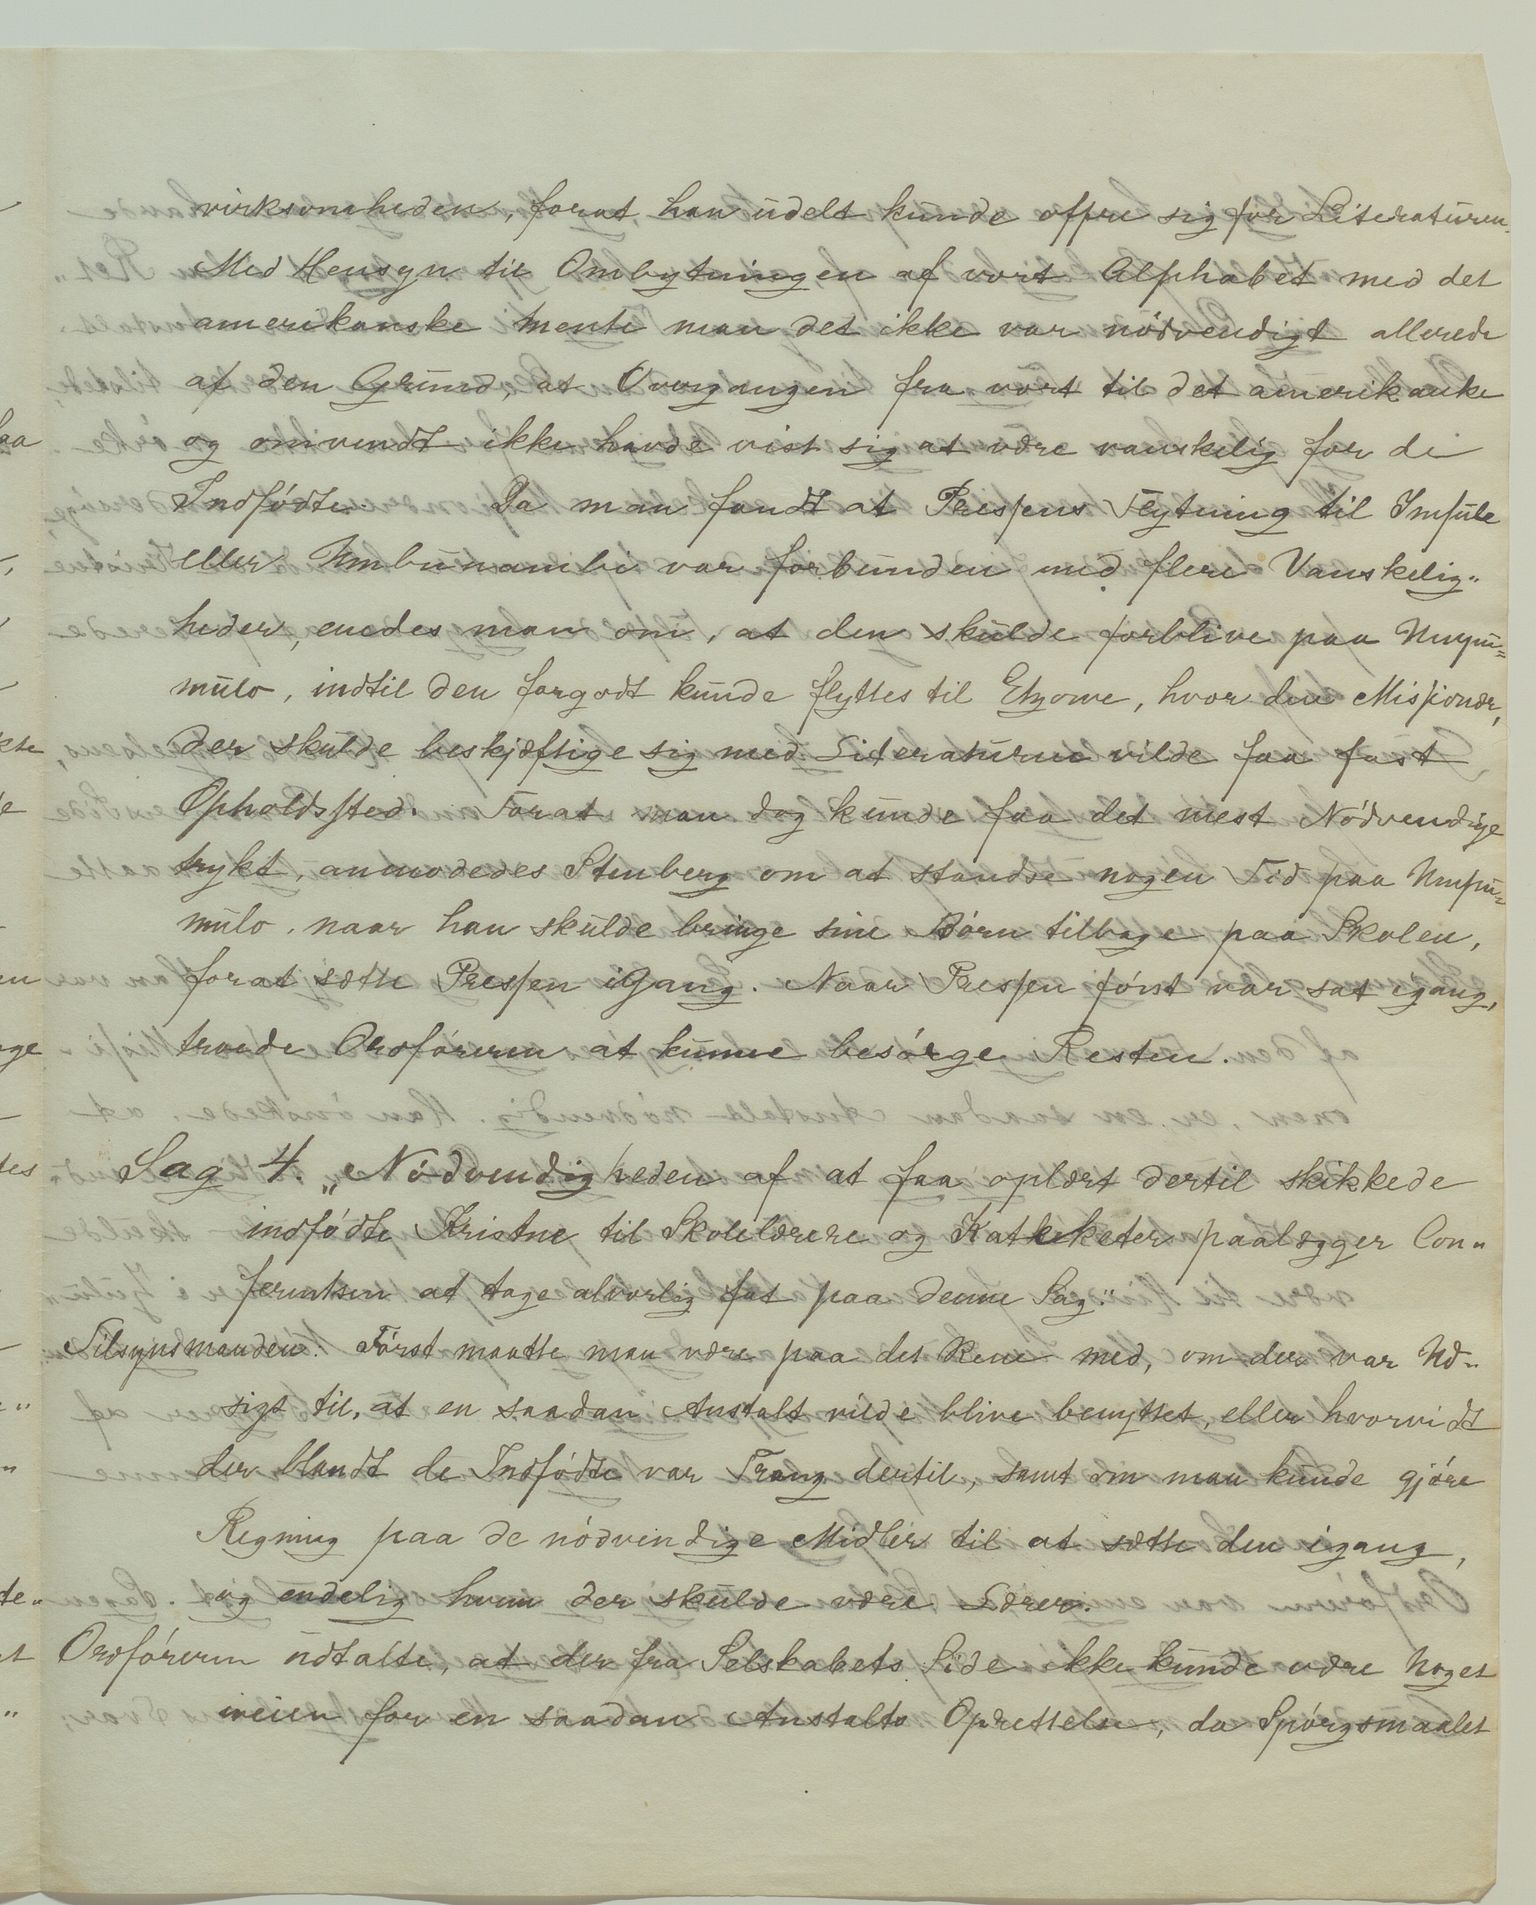 virksomheden, forat han udelt kunde offre sig for Literaturen.
Med Hensyn til Ombytningen af vort Alphabet med det
amerikanske mente man det ikke var nödvendigt allerede
af den Grund, at Overgangen fra vort til det amerikanke
og omvendt ikke havde vist sig at være vanskelig for de
Indfödte. Da man fandt at Pressens Flytning til Imfule
eller Umbunambi var forbunden med flere Vanskelig„
heder, enedes man om, at den skulde forblive paa Umpu=
mulo, indtil den forgodt kunde flyttes til Ekjowe, hvor den Missionær,
der skulde beskjæftige sig med Literaturen vilde faa fast
Opholdssted. Forat man dog kunde faa det mest Nödvendige
trykt, anmodedes Stenberg om at standse nogen Tid paa Umpu=
mulo, naar han skulde bringe sine Börn tilbage paa Skolen,
forat sætte Pressen igang. Naar Pressen först var sat igang,
troede Ordföreren at kunne besörge Resten.
Sag 4. „Nödvendigheden af at faa oplært dertil skikkede
indfödte Kristne til Skolelærere og Kateketer paalægger Con„
ferentsen at tage alvorlig fat paa denne Sag."
Tilsynsmanden: Först maatte man være paa det Rene med, om der var Ud„
sigt til, at en saadan Anstalt vilde blive benyttet, eller hvorvidt
der blandt de Indfödte var Trang dertil, samt om man kunde gjöre
Regning paa de nödvendige Midler til at sætte den igang,
og endelig hvem der skulde være Lærer.
Ordföreren udtalte, at der fra Selskabets Side ikke kunde være Noget
iveien for en saadan Anstalts Oprettelse, da Spörgsmaalet